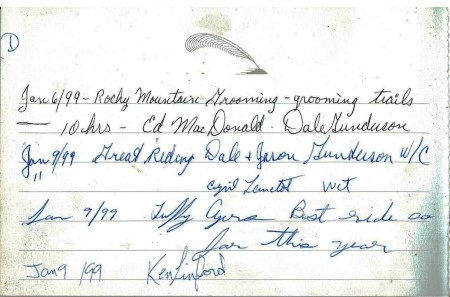 D
Jan 6/99 - Rocky Mountain Grooming - grooming trails
— 10 hrs - Ed MacDonald - Dale Gunderson
Jan 9/99 Great Riding Dale + Jason Gunderson W/C
" Cyril W/C
Jan 9/99 Tuffy Best ride so
far this year
Jan 9/99 Ken Linford